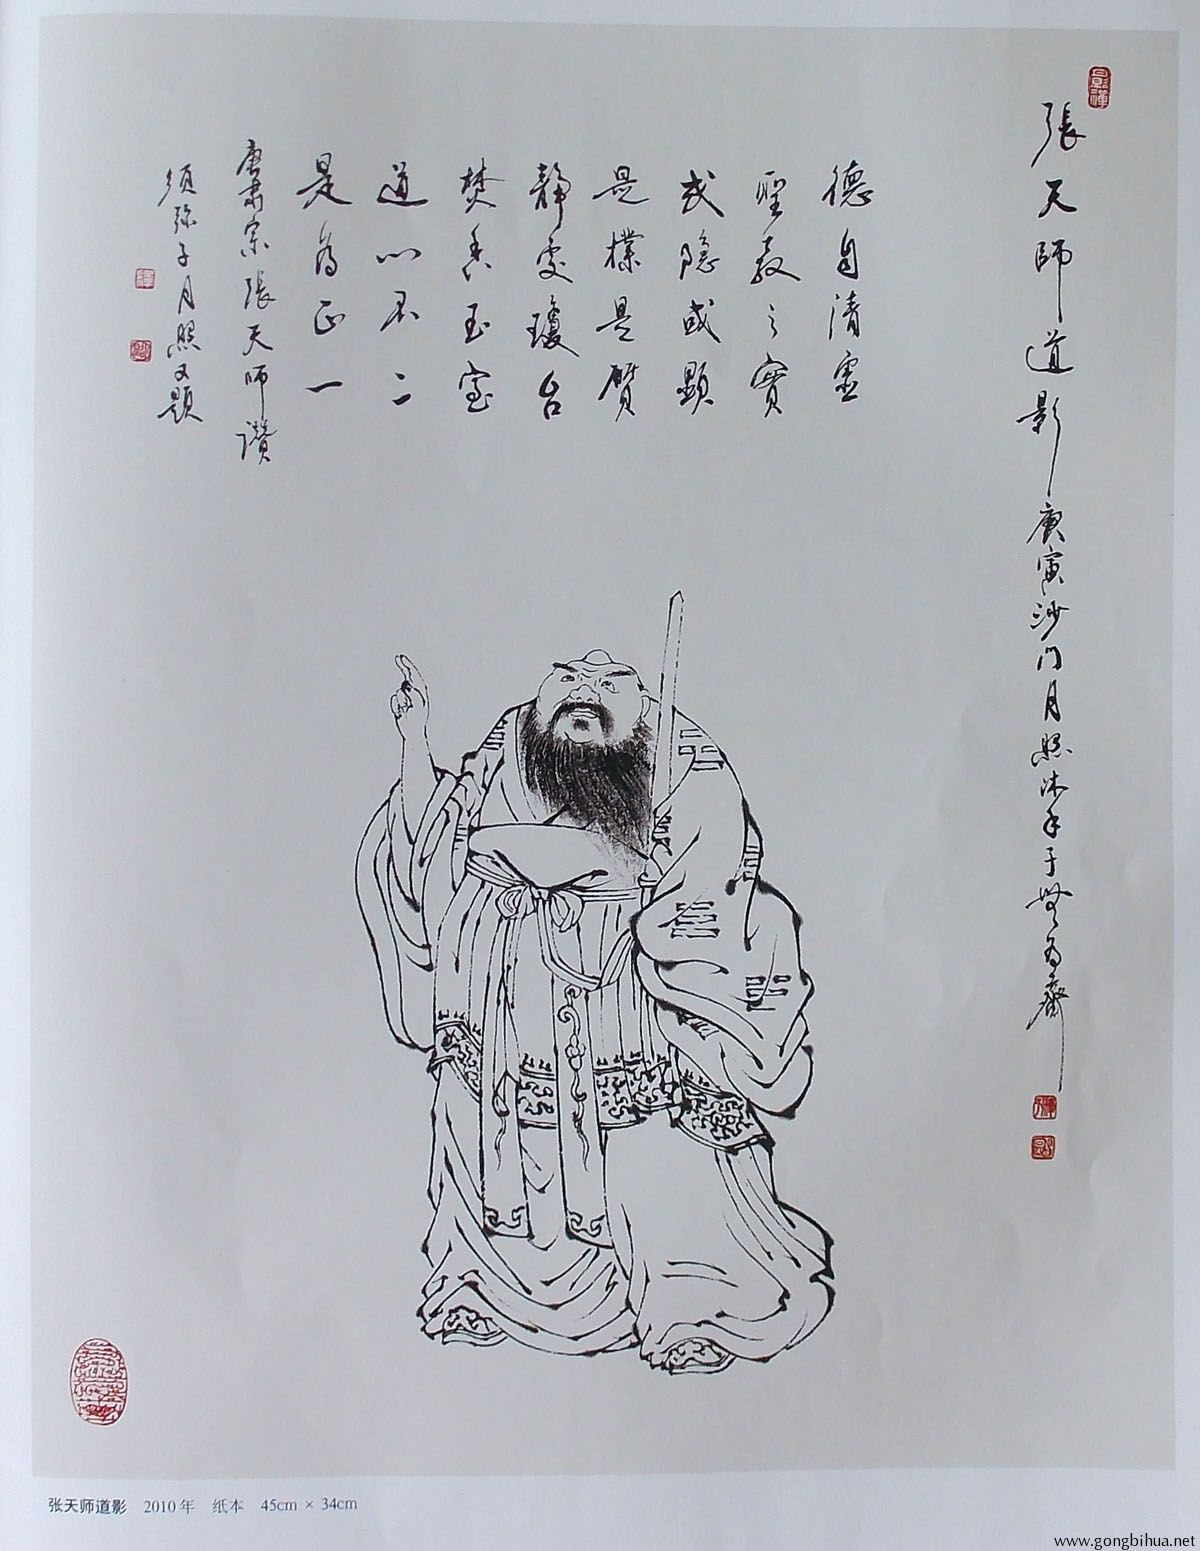 張天師道影
庚寅沙门月照沐手于無為齋
德自清虛
聖教之實
或隐或顯
是樸是質
靜處瓊台
焚香玉室
道心不二
是為正一
唐肅宗張天師讚
須弥子月照又題
张天师道影 2010年 纸本 45cm × 34cm
www.gongbihua.net